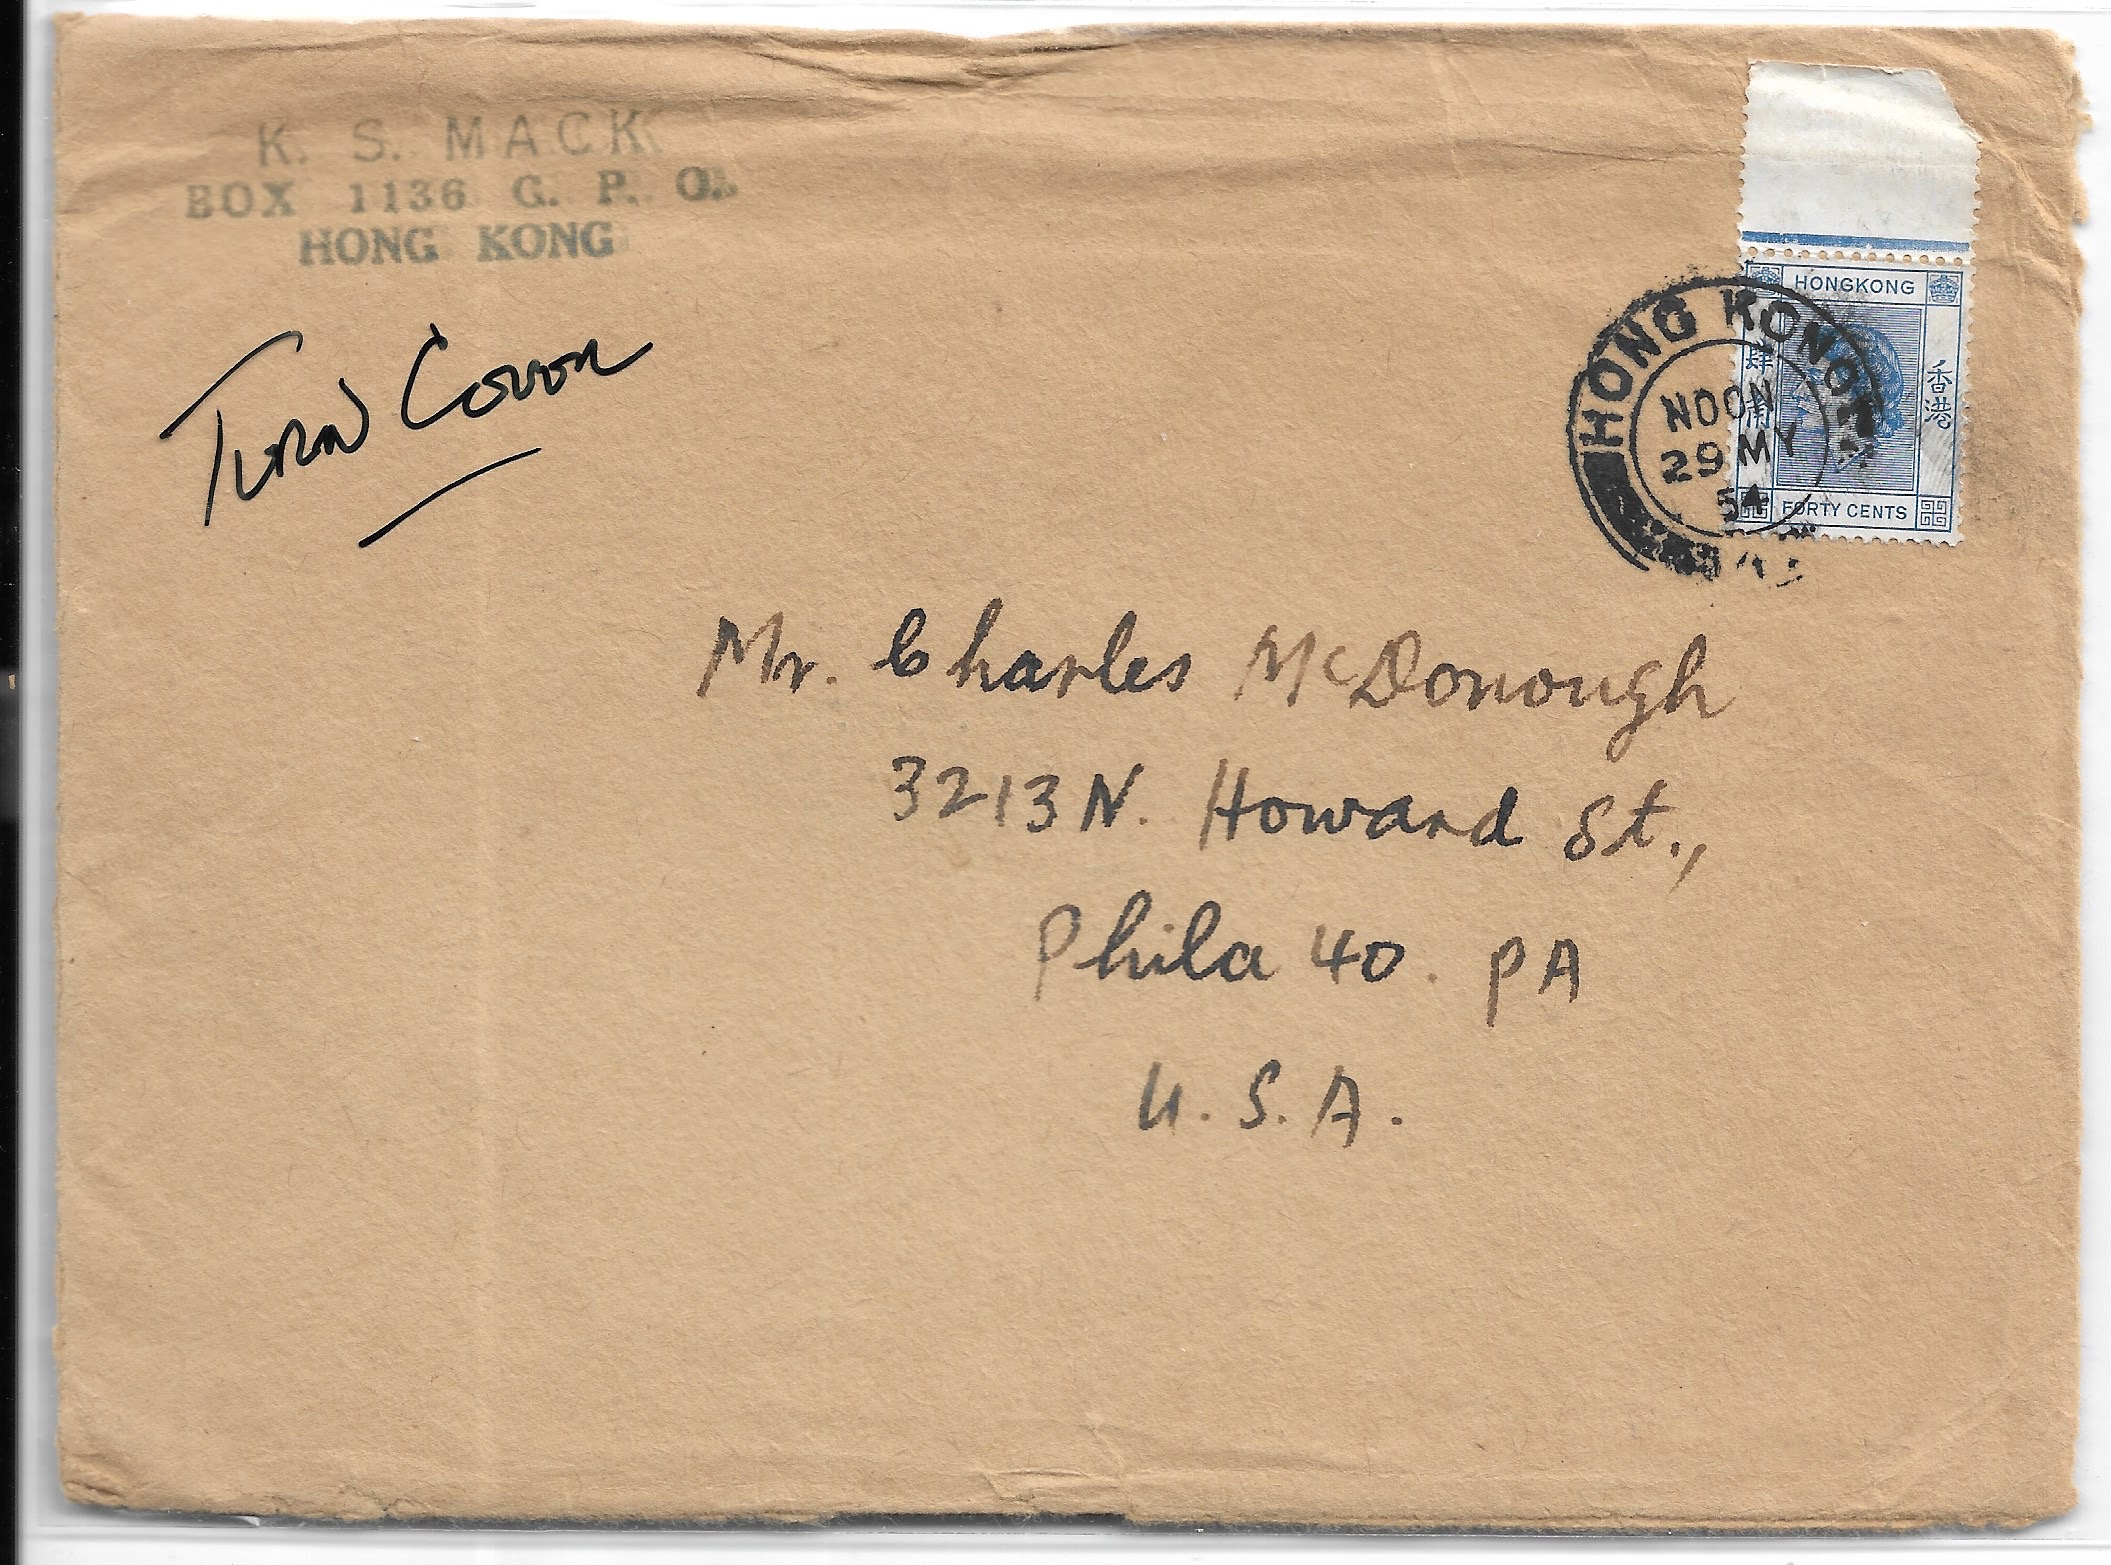 K. S. MACK
BOX 1136 G. P. O.
HONG KONG
Turn Cover
HONGKONG
香港
FORTY CENTS
HONG KONG
NOON
29 MY
54
Mr. Charles McDonough
3213 N. Howard St.,
Phila 40. PA
U. S. A.